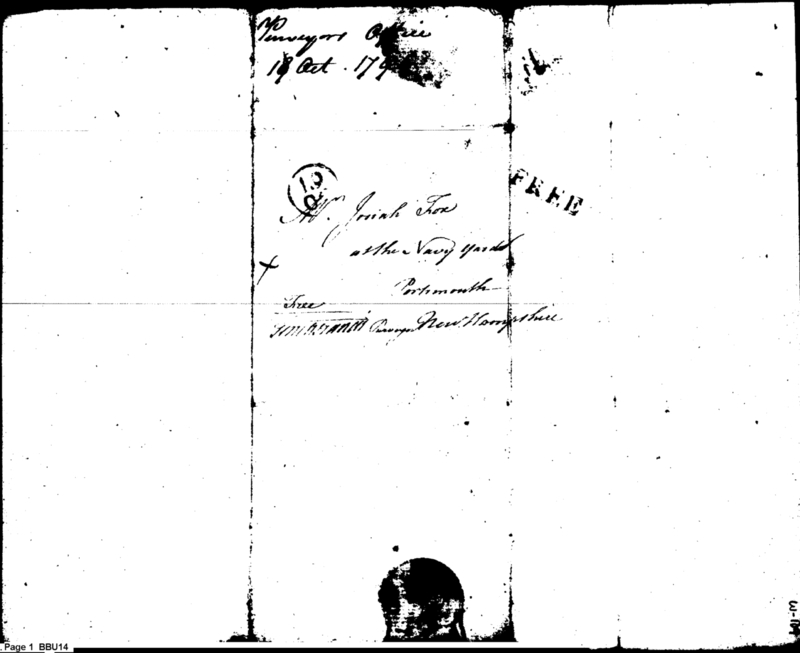 Purveyors Office
18 Oct. 179
19
FREE
Mr. Josiah Fox
at the Navy Yard
Portsmouth
Free
Purveyor New Hampshire
Page 1 BBU14